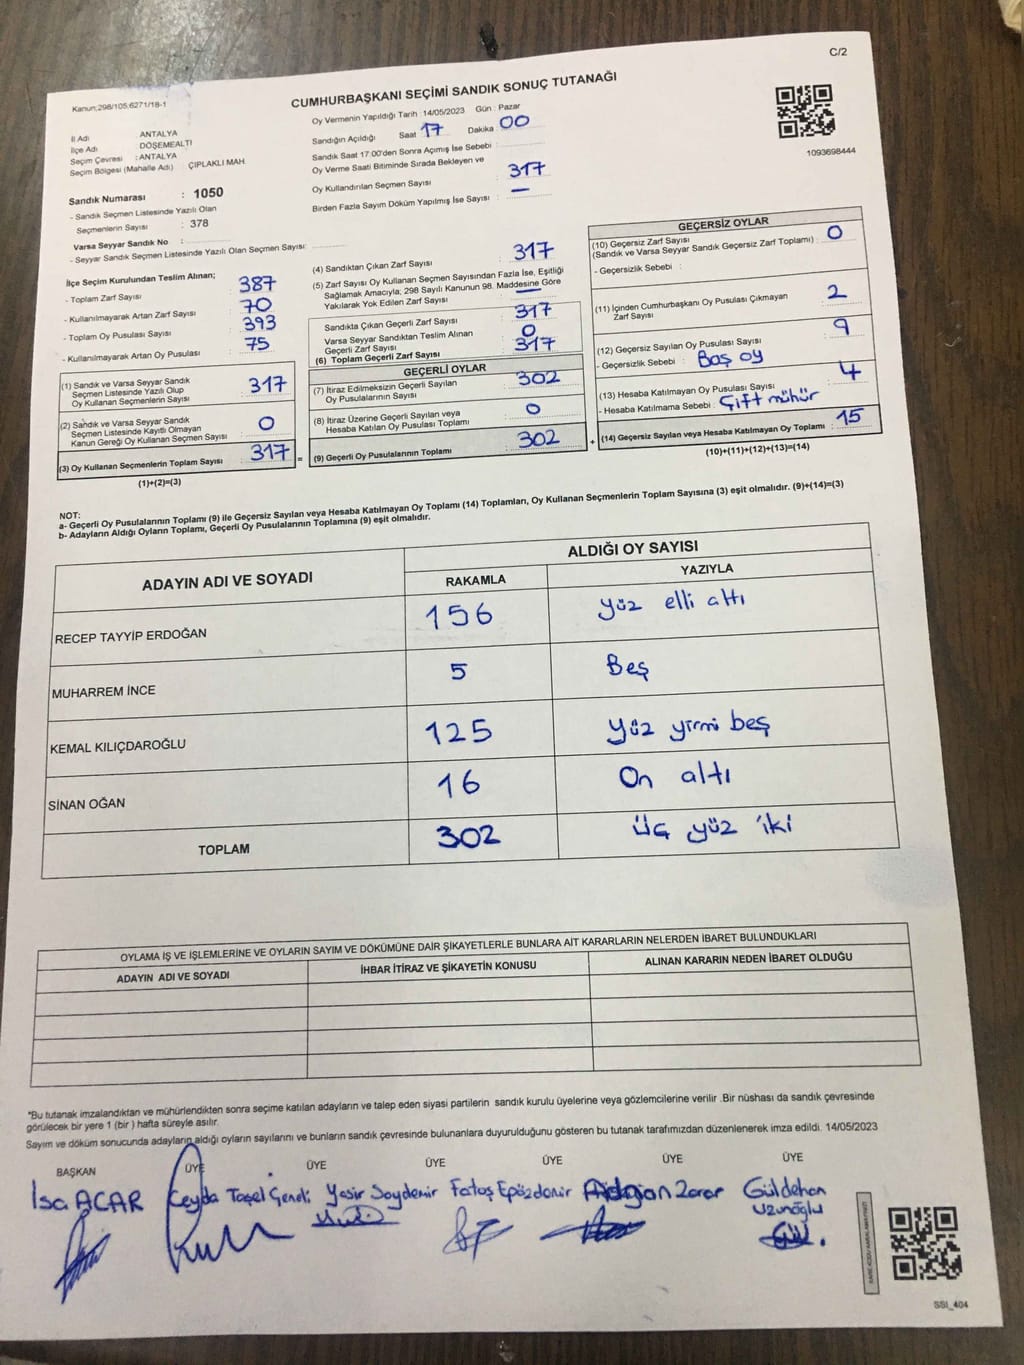 C/2
Kanun;298/105;6271/18-1
CUMHURBAŞKANI SEÇİMİ SANDIK SONUÇ TUTANAĞI
İl Adı : ANTALYA
İlçe Adı : DÖŞEMEALTI
Seçim Çevresi : ANTALYA
Seçim Bölgesi (Mahalle Adı) ÇIPLAKLI MAH.
Sandık Numarası : 1050
- Sandık Seçmen Listesinde Yazılı Olan
Seçmenlerin Sayısı : 378
Varsa Seyyar Sandık No :
- Seyyar Sandık Seçmen Listesinde Yazılı Olan Seçmen Sayısı:
Oy Vermenin Yapıldığı Tarih : 14/05/2023 Gün : Pazar
Sandığın Açıldığı Saat 17 Dakika : 00
Sandık Saat 17:00'den Sonra Açımış İse Sebebi :
Oy Verme Saati Bitiminde Sırada Bekleyen ve
Oy Kullandırılan Seçmen Sayısı : 317
Birden Fazla Sayım Döküm Yapılmış İse Sayısı : —
1093698444
İlçe Seçim Kurulundan Teslim Alınan;
- Toplam Zarf Sayısı : 387
- Kullanılmayarak Artan Zarf Sayısı : 70
- Toplam Oy Pusulası Sayısı : 393
- Kullanılmayarak Artan Oy Pusulası : 75
(1) Sandık ve Varsa Seyyar Sandık
Seçmen Listesinde Yazılı Olup
Oy Kullanan Seçmenlerin Sayısı : 317
(2) Sandık ve Varsa Seyyar Sandık
Seçmen Listesinde Kayıtlı Olmayan
Kanun Gereği Oy Kullanan Seçmen Sayısı : 0
(3) Oy Kullanan Seçmenlerin Toplam Sayısı : 317 =
(1)+(2)=(3)
(4) Sandıktan Çıkan Zarf Sayısı : 317
(5) Zarf Sayısı Oy Kullanan Seçmen Sayısından Fazla İse, Eşitliği
Sağlamak Amacıyla; 298 Sayılı Kanunun 98. Maddesine Göre
Yakılarak Yok Edilen Zarf Sayısı : —
Sandıkta Çıkan Geçerli Zarf Sayısı : 317
Varsa Seyyar Sandıktan Teslim Alınan
Geçerli Zarf Sayısı : 0
(6) Toplam Geçerli Zarf Sayısı : 317
GEÇERLİ OYLAR
(7) İtiraz Edilmeksizin Geçerli Sayılan
Oy Pusulalarının Sayısı : 302
(8) İtiraz Üzerine Geçerli Sayılan veya
Hesaba Katılan Oy Pusulası Toplamı : 0
(9) Geçerli Oy Pusulalarının Toplamı : 302 +
GEÇERSİZ OYLAR
(10) Geçersiz Zarf Sayısı
(Sandık ve Varsa Seyyar Sandık Geçersiz Zarf Toplamı) : 0
- Geçersizlik Sebebi :
(11) İçinden Cumhurbaşkanı Oy Pusulası Çıkmayan
Zarf Sayısı : 2
(12) Geçersiz Sayılan Oy Pusulası Sayısı : 9
- Geçersizlik Sebebi : Boş oy
(13) Hesaba Katılmayan Oy Pusulası Sayısı : 4
- Hesaba Katılmama Sebebi : Çift mühür
(14) Geçersiz Sayılan veya Hesaba Katılmayan Oy Toplamı : 15
(10)+(11)+(12)+(13)=(14)
NOT:
a- Geçerli Oy Pusulalarının Toplamı (9) ile Geçersiz Sayılan veya Hesaba Katılmayan Oy Toplamı (14) Toplamları, Oy Kullanan Seçmenlerin Toplam Sayısına (3) eşit olmalıdır. (9)+(14)=(3)
b- Adayların Aldığı Oyların Toplamı, Geçerli Oy Pusulalarının Toplamına (9) eşit olmalıdır.
ADAYIN ADI VE SOYADI
ALDIĞI OY SAYISI
RAKAMLA YAZIYLA
RECEP TAYYİP ERDOĞAN 156 yüz elli altı
MUHARREM İNCE 5 Beş
KEMAL KILIÇDAROĞLU 125 yüz yirmi beş
SİNAN OĞAN 16 On altı
TOPLAM 302 üç yüz iki
OYLAMA İŞ VE İŞLEMLERİNE VE OYLARIN SAYIM VE DÖKÜMÜNE DAİR ŞİKAYETLERLE BUNLARA AİT KARARLARIN NELERDEN İBARET BULUNDUKLARI
ADAYIN ADI VE SOYADI İHBAR İTİRAZ VE ŞİKAYETİN KONUSU ALINAN KARARIN NEDEN İBARET OLDUĞU
*Bu tutanak imzalandıktan ve mühürlendikten sonra seçime katılan adayların ve talep eden siyasi partilerin sandık kurulu üyelerine veya gözlemcilerine verilir .Bir nüshası da sandık çevresinde
görülecek bir yere 1 (bir ) hafta süreyle asılır.
Sayım ve döküm sonucunda adayların aldığı oyların sayılarını ve bunların sandık çevresinde bulunanlara duyurulduğunu gösteren bu tutanak tarafımızdan düzenlenerek imza edildi. 14/05/2023
BAŞKAN ÜYE ÜYE ÜYE ÜYE ÜYE ÜYE
İsa ACAR Ceyda Taşel Geneli Yasir Soydemir Fatoş Epözdemir Güldehan
Uzunoğlu
SSI_404